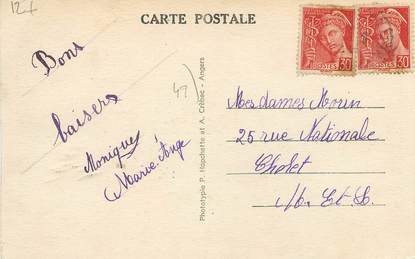 12f
CARTE POSTALE
Bons
baisers
Monique
Marie-Ange
49
Phototypie P. Hapchette et A. Crébec - Angers
POSTES 30
POSTES 30
Mesdames Morin
25 rue Nationale
Cholet
M. Et L.